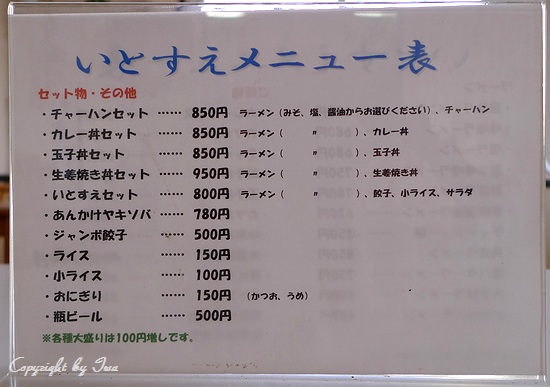 いとすえメニュー表
セット物・その他
・チャーハンセット …… 850円 ラーメン（みそ、塩、醤油からお選びください）、チャーハン
・カレー丼セット …… 850円 ラーメン（ 〃 ）、カレー丼
・玉子丼セット …… 850円 ラーメン（ 〃 ）、玉子丼
・生姜焼き丼セット …… 950円 ラーメン（ 〃 ）、生姜焼き丼
・いとすえセット …… 800円 ラーメン（ 〃 ）、餃子、小ライス、サラダ
・あんかけヤキソバ …… 780円
・ジャンボ餃子 …… 500円
・ライス …… 150円
・小ライス …… 100円
・おにぎり …… 150円 （かつお、うめ）
・瓶ビール …… 500円
※各種大盛りは100円増しです。
Copyright by Ima